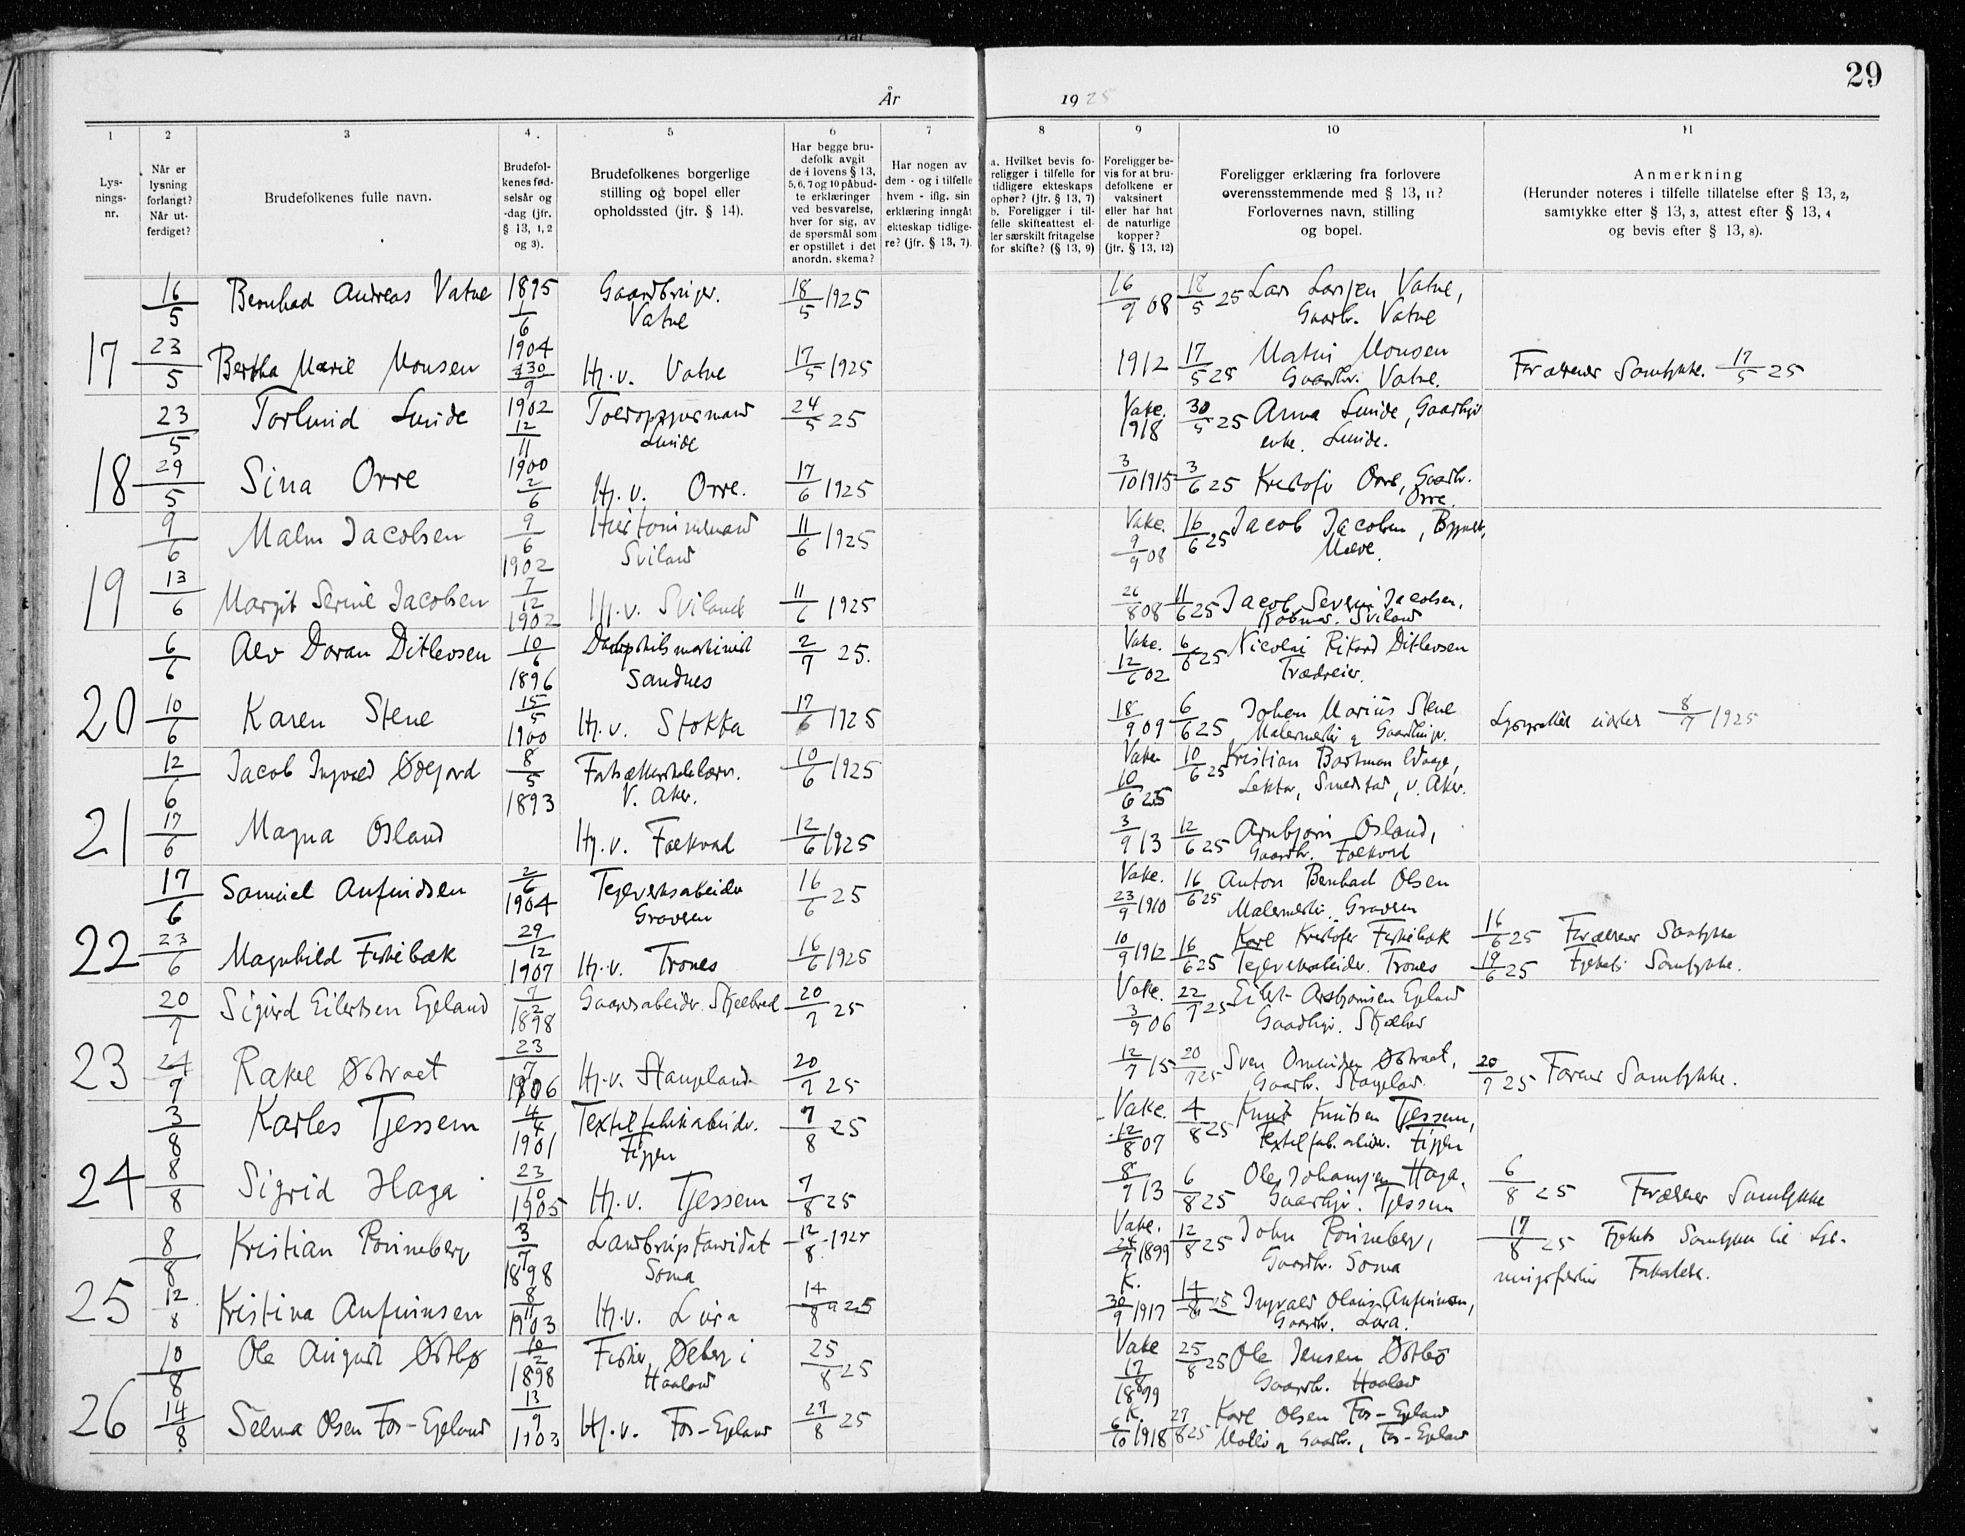 29
År 1925
1 2 3 4 5 6 7 8 9 10 11
Lys-
nings-
nr.
Når er
lysning
forlangt?
Når ut-
ferdiget?
Brudefolkenes fulle navn.
Brudefol-
kenes fød-
selsår og
-dag (jfr.
§ 13, 1, 2
og 3).
Brudefolkenes borgerlige
stilling og bopel eller
opholdssted (jfr. § 14).
Har begge bru-
defolk avgit
de i lovens § 13,
5, 6, 7 og 10 påbud-
te erklæringer
ved besvarelse,
hver for sig, av
de spørsmål som
er opstillet i det
anordn. skema?
Har nogen av
dem - og i tilfelle
hvem - iflg. sin
erklæring inngåt
ekteskap tidlige-
re? (jfr. § 13, 7).
a. Hvilket bevis fo-
religger i tilfelle for
tidligere ekteskaps
ophør? (jfr. § 13, 7)
b. Foreligger i til-
felle skifteattest el-
ler særskilt fritagelse
for skifte? (§ 13, 9)
Foreligger be-
vis for at bru-
defolkene er
vaksinert
eller har hat
de naturlige
kopper?
(jfr. § 13, 12)
Foreligger erklæring fra forlovere
overensstemmende med § 13, 11?
Forlovernes navn, stilling
og bopel.
Anmerkning
(Herunder noteres i tilfelle tillatelse efter § 13, 2,
samtykke efter § 13, 3, attest efter § 13, 4
og bevis efter § 13, 8).
16/5 Bernhard Andreas Vatne 1895 1/6 Gaardbruger. Vatne 18/5 1925 16/9 08 18/5 25 Lars Larsen Vatne,
Gaardbr. Vatne
17 23/5 Bertha Marie Monsen 1904 30/9 Hj. v. Vatne 17/5 1925 1912 17/5 25 Monsen
Gaardbr. Vatne. Forældrenes Samtykke. 17/5 25
23/5 Torlund Lunde 1902 12/11 Lunde 24/5 25 Vake. 1918 30/5 25 Anna Lunde,
enke. Lunde.
18 29/5 Sina Orre 1900 2/6 Hj. v. Orre. 17/6 1925 3/10 1915 3/6 25 Kristofer Orre, Gaardbr.
Orre.
9/6 Malm Jacobsen 9/6 1902 Sviland 11/6 1925 Vake. 9/9 08 16/6 25 Jacob Jacobsen,
19 13/6 Margit Serine Jacobsen 7/12 1902 Hj. v. Sviland 11/6 1925 26/8 08 11/6 25 Jacob Severin Jacobsen,
Kobmd. Sviland
6/6 Alv Doran Ditlevsen 10/6 1896 Sandnes 2/7 25. Vake. 12/6 02 6/6 25 Nicolai Rikard Ditlevsen
Trædreier.
20 10/6 Karen Stene 15/5 1900 Hj. v. Stokka 17/6 1925 18/9 09 6/6 25 Johan Marius Stene
Malermester & Gaardbruger. 8/7 1925
12/6 Jacob Ingvald Ødegård 8/5 1893 V. Aker. 10/6 1925 Vake 10/6 25 Kristian Waage,
Lektor, Smedstad, v. Aker.
21 17/6 Magna Osland Hj. v. Folkvord 12/6 1925 3/9 13 12/6 25 Arnbjørn Osland,
Gaardbr. Folkvord
17/6 Samuel Anfindsen 2/6 1904 Teglverksarbeider Gravern 16/6 25 Vake. 23/9 1910 16/6 25 Anton Bernhard Olsen
Malermester. Gravern
22 23/6 Magnhild Fiskebæk 29/12 1907 Hj. v. Trones 16/6 1925 10/9 1912 16/6 25 Karl Kristofer Fiskebæk
Teglverksarbeider. Trones 16/6 25 Forældrenes Samtykke
19/6 25 Fylkets Samtykke.
20/7 Sigurd Eilertsen Egeland 7/2 1898 Gaardsarbeider. 20/7 25 Vake. 3/9 06 22/7 25 Eilert Asbjørnsen Egeland
23 24/7 Rakel Østraet 23/7 1906 Hj. v. Stangeland 20/7 25 12/7 15 20/7 25 Sven Omundsen Østraat,
Gaardbr. Stangeland. 20/7 25 Farens Samtykke.
3/8 Karles Tjessem 4/4 1901 Textilfabrikarbeider. Figgen 7/8 25 Vake. 12/8 07 4/8 25 Knut Knutsen Tjessem,
Textilfab. arbeider. Figgen
24 8/8 Sigrid Haga 23/10 1905 Hj. v. Tjessem 7/8 25 8/9 13 6/8 25 Ole Johansen Haga.
Gaardbr. Tjessem 6/8 25 Forældrenes Samtykke
8/8 Kristian Rønneberg 3/7 1898 Landbrugskandidat Soma 12/8 192 Vake. 1899 12/8 25 John Rønneberg,
Gaardbr. Soma 17/8 25 Fylkets Samtykke til
25 12/8 Kristina Anfinnsen 8/11 1903 Hj. v. Lura 14/8 25 K. 30/9 1917 14/8 25 Ingvald Olaus Anfinnsen,
Gaardbr. Lura.
10/8 Ole August Østbø 10/2 1898 Fisker, Ødeberg i Haaland 25/8 25 Vake 17/8 1899 25/8 25 Ole Jensen Østbø
Gaardbr. Haaland
26 14/8 Selma Olsen Fos-Egeland 13/9 1903 Hj. v. Fos-Egeland 27/8 25 K. 6/10 1918 27/8 25 Karl Olsen Fos-Egeland
Møller & Gaardbr., Fos-Egeland